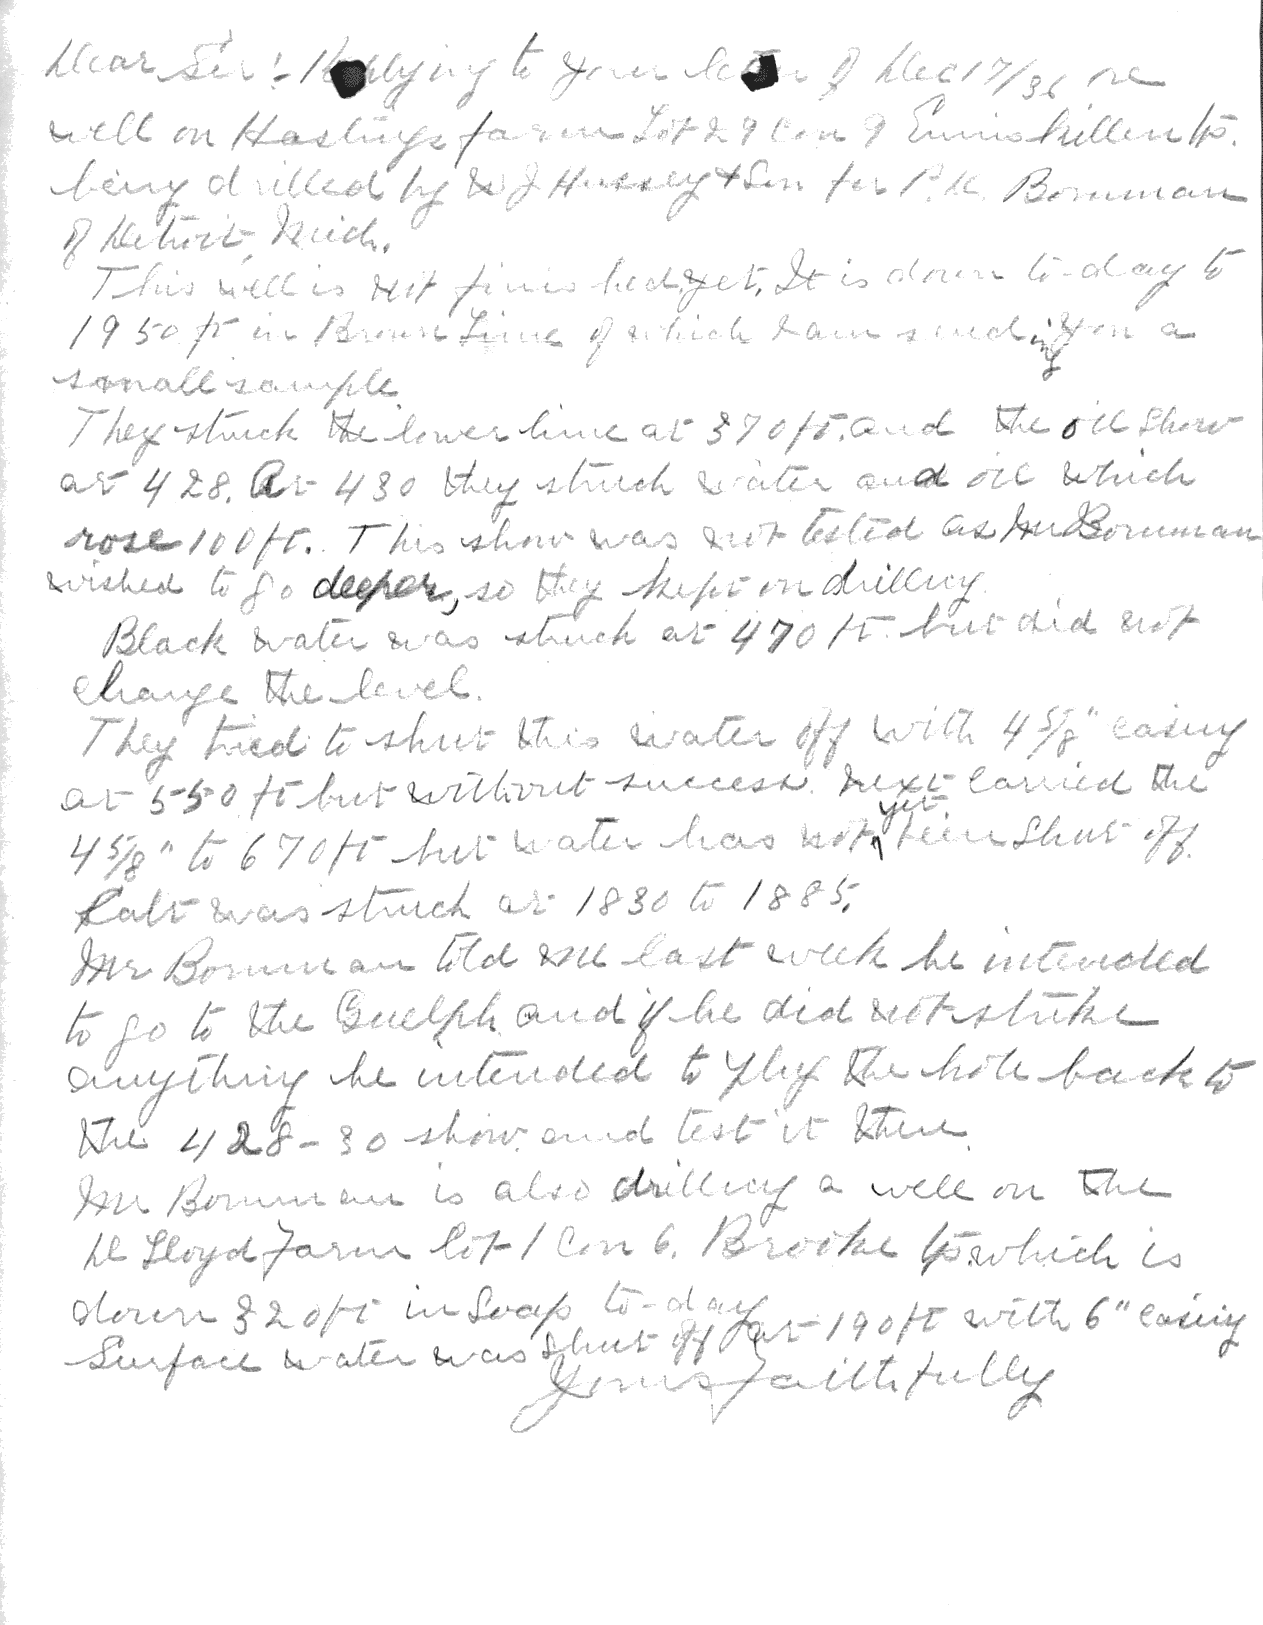 Dear Sir:- Replying to your letter of Dec 17/36 re
well on Hastings farm Lot 29 Con 9 Enniskillen tp.
being drilled by W J Hussey & Son for P.K. Bowman
of Detroit, Mich.
This well is not finished yet. It is down to-day to
1950 ft in Brown Lime of which I am sending you a
small sample
They struck the lower lime at 370 ft. and the oil show
at 428. At 430 they struck water and oil which
rose 100 ft. This show was not tested as Mr Bowman
wished to go deeper, so they kept on drilling.
Black water was struck at 470 ft. but did not
change the level.
They tried to shut this water off with 4 5/8" casing
at 550 ft but without success. Next carried the
4 5/8" to 670 ft but water has not yet been shut off.
Salt was struck at 1830 to 1885.
Mr Bowman told me last week he intended
to go to the Guelph and if he did not strike
anything he intended to plug the hole back to
the 428-30 show and test it there.
Mr Bowman is also drilling a well on the
D Lloyd Farm Lot 1 Con 6. Brooke tp. which is
down 320 ft in Soap to-day
Surface water was shut off at 190 ft with 6" casing
Yours Faithfully